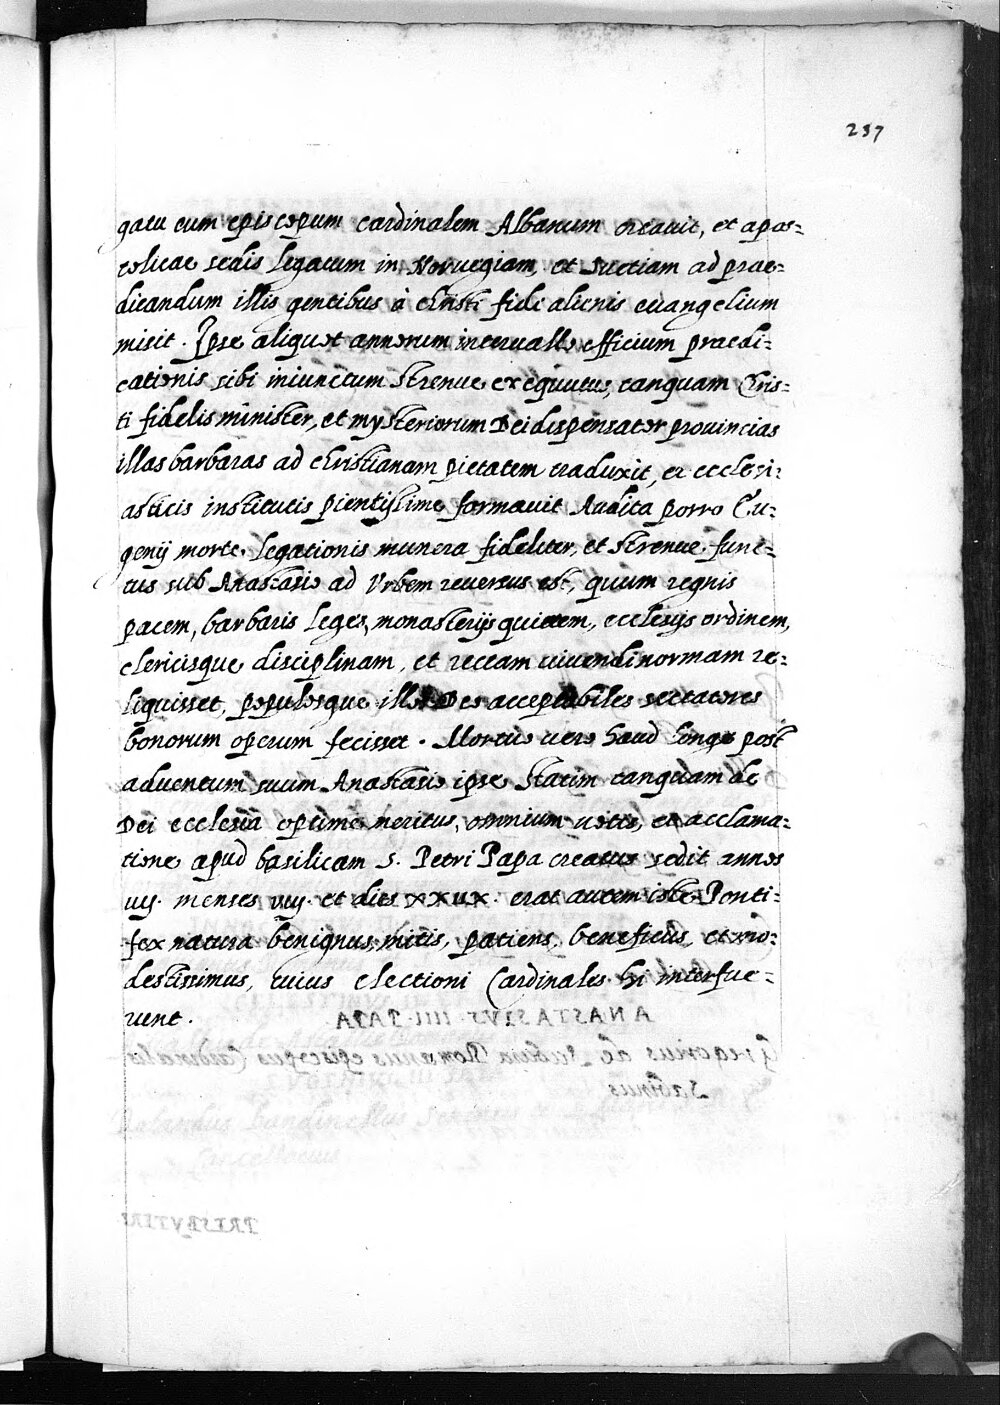 237
gatu eum episcopum cardinalem Albanum creauit, et apos-
tolicae sedis legatum in Noruegiam, et Suetiam ad prae-
dicandum illis gentibus à Christi fide alienis euangelium
misit. Ipse aliquot annorum interuallo officium praedi-
cationis sibi iniunctum strenue exequutus, tanquam Chris-
ti fidelis minister, et mysteriorum Dei dispensator prouincias
illas barbaras ad christianam pietatem traduxit, et ecclesi-
asticis institutis pientissime formauit Audita porro Eu-
genij morte, legationis munera fideliter, et strenue func-
tus sub Anastasio ad Vrbem reuersus est, quum regnis
pacem, barbaris leges, monasterijs quietem, ecclesijs ordinem,
clericisque disciplinam, et rectam uiuendi normam re-
liquisset, populosque illos Deo acceptabiles sectatores
bonorum operum fecisset. Mortuo uero haud longe post
aduentum suum Anastasio ipse statim tanquam de
Dei ecclesia optime meritus, omnium uotis, et acclama-
tione apud basilicam S. Petri Papa creatus sedit annos
iiij. menses viij. et dies XXIIX. erat autem iste Ponti-
fex natura benignus, mitis, patiens, beneficus, et mo-
destissimus, cuius electioni Cardinales hi interfue-
runt.